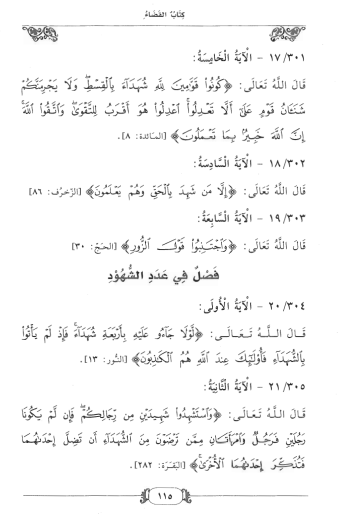 كِتَابُ القَضَاءِ
١٧/٣٠١ - الآيَةُ الْخَامِسَةُ:
قَالَ اللَّهُ تَعَالَى: ﴿كُونُوا۟ قَوَّٰمِينَ لِلَّهِ شُهَدَآءَ بِٱلْقِسْطِ وَلَا يَجْرِمَنَّكُمْ
شَنَـَٔانُ قَوْمٍ عَلَىٰٓ أَلَّا تَعْدِلُوا۟ ٱعْدِلُوا۟ هُوَ أَقْرَبُ لِلتَّقْوَىٰ وَٱتَّقُوا۟ ٱللَّهَ
إِنَّ ٱللَّهَ خَبِيرٌۢ بِمَا تَعْمَلُونَ﴾ [المَائدة: ٨].
١٨/٣٠٢ - الآيَةُ السَّادِسَةُ:
قَالَ اللَّهُ تَعَالَى: ﴿إِلَّا مَن شَهِدَ بِٱلْحَقِّ وَهُمْ يَعْلَمُونَ﴾ [الزّخرُف: ٨٦]
١٩/٣٠٣ - الآيَةُ السَّابِعَةُ:
قَالَ اللَّهُ تَعَالَى: ﴿وَٱجْتَنِبُوا۟ قَوْلَ ٱلزُّورِ﴾ [الحَجّ: ٣٠]
فَصْلٌ فِي عَدَدِ الشُّهُوْدِ
٢٠/٣٠٤ - الآيَةُ الأُولَى:
قَالَ اللَّهُ تَعَالَى: ﴿لَّوْلَا جَآءُو عَلَيْهِ بِأَرْبَعَةِ شُهَدَآءَ فَإِذْ لَمْ يَأْتُوا۟
بِٱلشُّهَدَآءِ فَأُو۟لَٰٓئِكَ عِندَ ٱللَّهِ هُمُ ٱلْكَٰذِبُونَ﴾ [النُّور: ١٣].
٢١/٣٠٥ - الآيَةُ الثَّانِيَةُ:
قَالَ اللَّهُ تَعَالَى: ﴿وَٱسْتَشْهِدُوا۟ شَهِيدَيْنِ مِن رِّجَالِكُمْ فَإِن لَّمْ يَكُونَا
رَجُلَيْنِ فَرَجُلٌ وَٱمْرَأَتَانِ مِمَّن تَرْضَوْنَ مِنَ ٱلشُّهَدَآءِ أَن تَضِلَّ إِحْدَىٰهُمَا
فَتُذَكِّرَ إِحْدَىٰهُمَا ٱلْأُخْرَىٰ﴾ [البَقَرَة: ٢٨٢].
١١٥